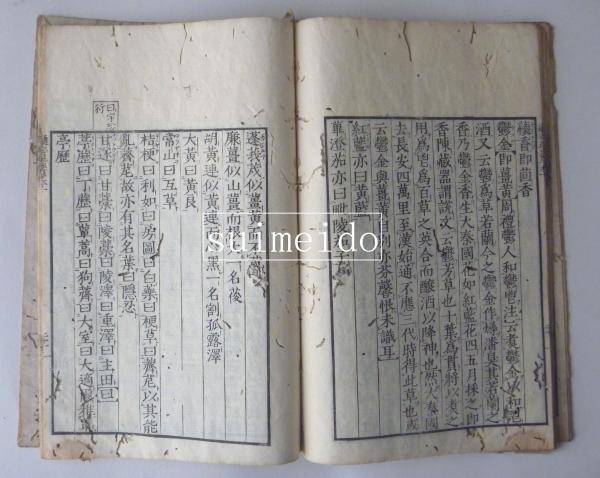 蘹香即茴香
鬱金即薑黃周禮鬱人和鬱鬯注云煮鬱金以和鬯
酒又云鬱為草若蘭今之鬱金作燔潘臭其若蘭之
香乃鬱金香生大秦國花如紅藍花四五月採之即
香陳藏器謂說文云鬱芳草也十葉為貫將以煮之
用為鬯為百草之英合而釀酒以降神也然大秦國
去長安四萬里至漢始通不應三代時得此草也或
云鬱金與薑黃自別芬馨恨未識耳
紅藍亦曰黃藍
蓽澄茄亦曰毗陵茄子
蓬莪茂似薑黃而
廉薑似山薑而根大一名葰
胡黃連似黃連而黑一名割孤露澤
大黃曰黃良
常山曰互草
桔梗曰利如曰房圖曰白藥曰梗草曰薺苨以其能
亂薺苨故亦有其名葉曰隱忍
甘遂曰甘藁曰陵藁曰陵澤曰重澤曰主田
葶藶曰丁藶曰蕇蒿曰狗薺曰大室曰大適
亭歷
suimeido